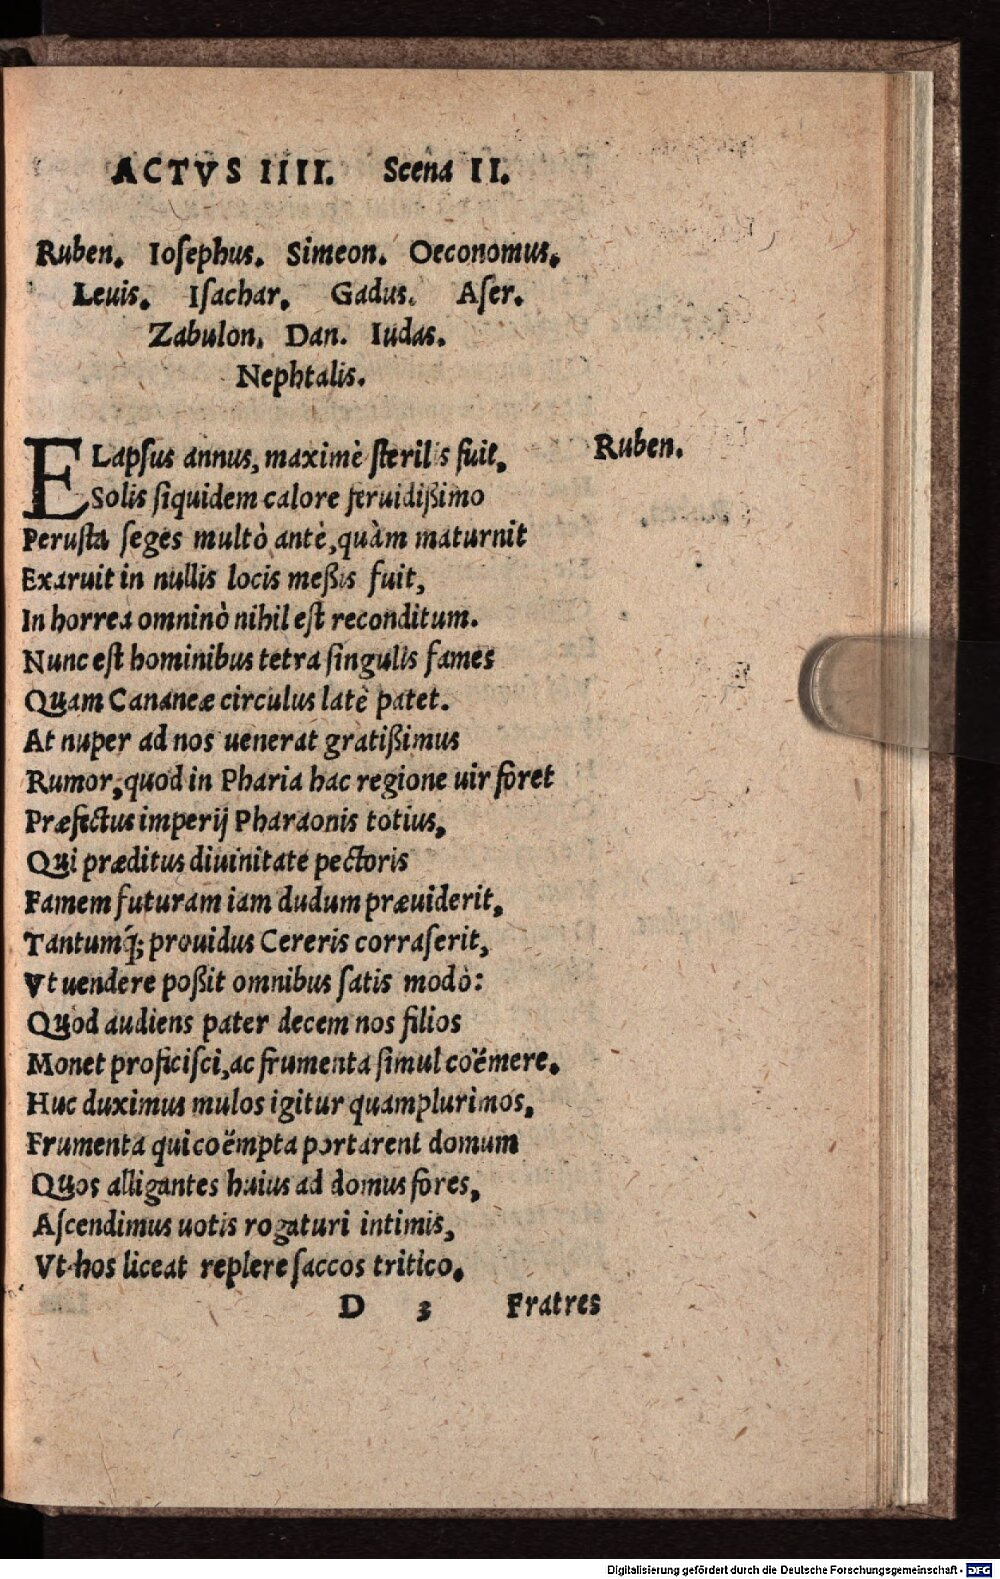 ACTVS IIII. Scena II.
Ruben. Ioſephus. Simeon. Oeconomus.
Leuis. Iſachar. Gadus. Aſer.
Zabulon. Dan. Iudas.
Nephtalis.
ELapſus annus, maximè ſterilis fuit, Ruben.
Solis ſiquidem calore feruidißimo
Peruſta ſeges multò antè, quàm maturuit
Exaruit in nullis locis meßis fuit,
In horrea omninò nihil eſt reconditum.
Nunc eſt hominibus tetra ſingulis fames
Quam Cananeæ circulus latè patet.
At nuper ad nos uenerat gratißimus
Rumor, quod in Pharia hac regione uir foret
Præfectus imperij Pharaonis totius,
Qui præditus diuinitate pectoris
Famem futuram iam dudum præuiderit,
Tantumq́; prouidus Cereris corraſerit,
Vt uendere poßit omnibus ſatis modò:
Quod audiens pater decem nos filios
Monet proficiſci, ac frumenta ſimul coëmere.
Huc duximus mulos igitur quamplurimos,
Frumenta qui coëmpta portarent domum
Quos alligantes huius ad domus fores,
Aſcendimus uotis rogaturi intimis,
Vt hos liceat replere ſaccos tritico.
D 3 Fratres
Digitalisierung gefördert durch die Deutsche Forschungsgemeinschaft - DFG